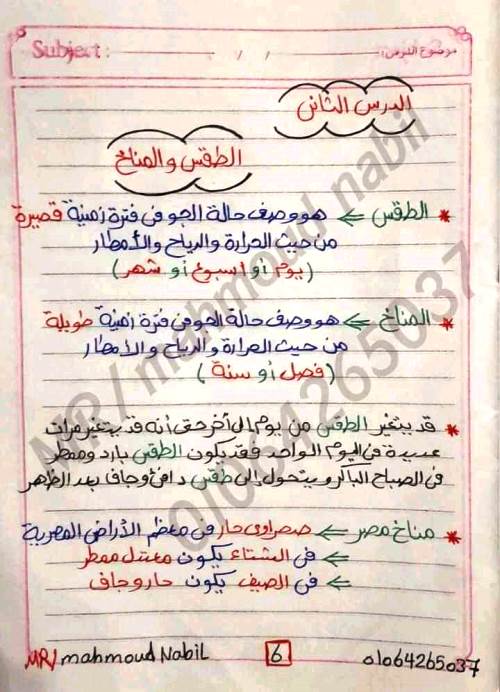 Subject: / / موضوع الدرس:
الدرس الثانى
الطقس والمناخ
* الطقس ⇐ هو وصف حالة الجو فى فترة زمنية قصيرة
من حيث الحرارة والرياح والأمطار
(يوم أو اسبوع أو شهر)
* المناخ ⇐ هو وصف حالة الجو فى فترة زمنية طويلة
من حيث الحرارة والرياح والأمطار
(فصل أو سنة)
* قد يتغير الطقس من يوم إلى أخر حتى أنه قد يتغير مرات
عديدة فى اليوم الواحد فقد يكون الطقس بارد وممطر
فى الصباح الباكر ويتحول إلى طقس دافئ وجاف بعد الظهر
* مناخ مصر ⇐ صحراوى حار فى معظم الأراضى المصرية
⇐ فى الشتاء يكون معتدل ممطر
⇐ فى الصيف يكون حار وجاف
MR/ mahmoud Nabil 6 01064265037
MR/ mahmoud nabil
01064265037